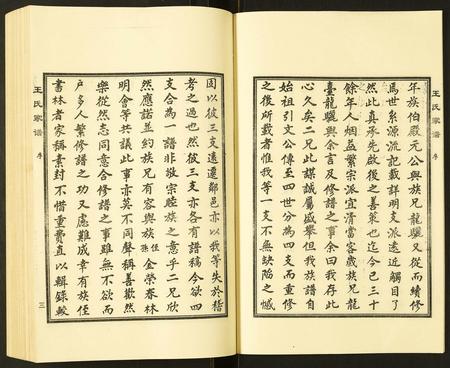 王氏家谱
序
年族伯殿元公與族兄龍驤又從而續修
爲世系源流記載詳明支派遠近觸目了
然此真承先啟後之善策也迄今已三十
餘年人烟益繁宗派宜清當客歲族兄龍
臺龍驤與余言及修譜之事余曰我存此
心久矣二兄此謀誠屬盛舉但我族譜自
始祖引文公傳至四世分為四支而重修
之後所載者惟我等一支不無缺陷之憾
王氏家谱
序
三
固以彼三支遠遷鄰邑亦以我等失於稽
考之過也然彼三支亦各有譜稿今欲四
支合為一譜非敬宗睦族之意乎二兄欣
然應諾並約族兄有容與族侄孫金榮春林
明會等共議此事亦莫不同聲稱善歡然
樂從然志同意合修譜之事雖無不欲而
户多人繁修譜之功又慮難成幸有族侄
書林者家稱素封不惜重費直以輯錄較